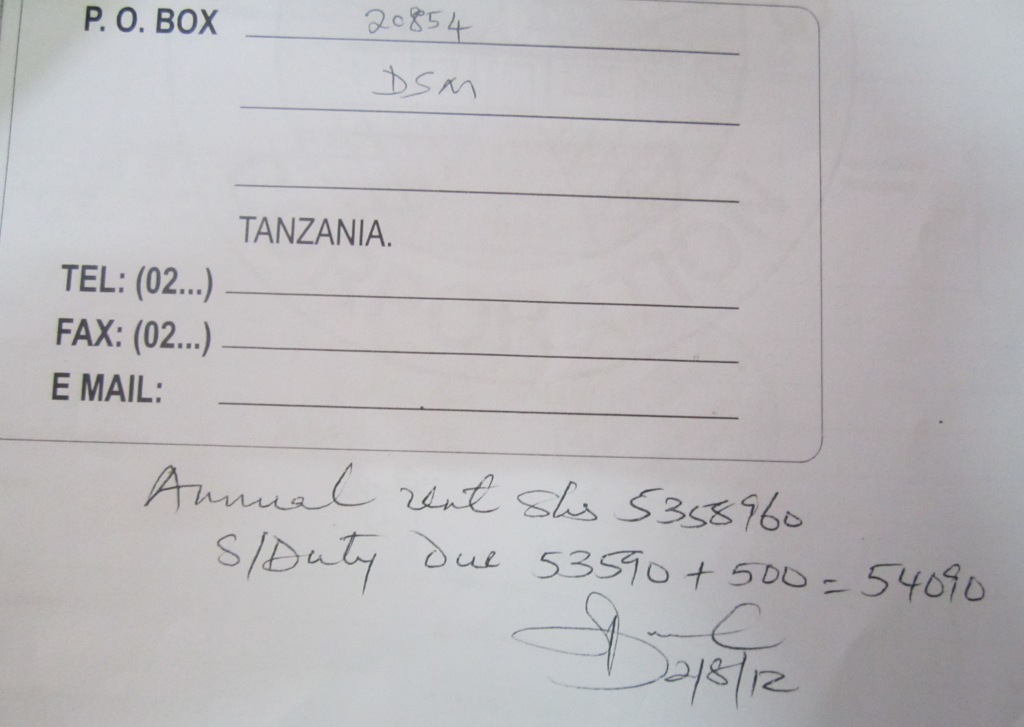 P. O. BOX 20854
DSM
TANZANIA.
TEL: (02...)
FAX: (02...)
E MAIL:
Annual rent Shs 5358960
S/Duty Due 53590 + 500 = 54090
2/8/12